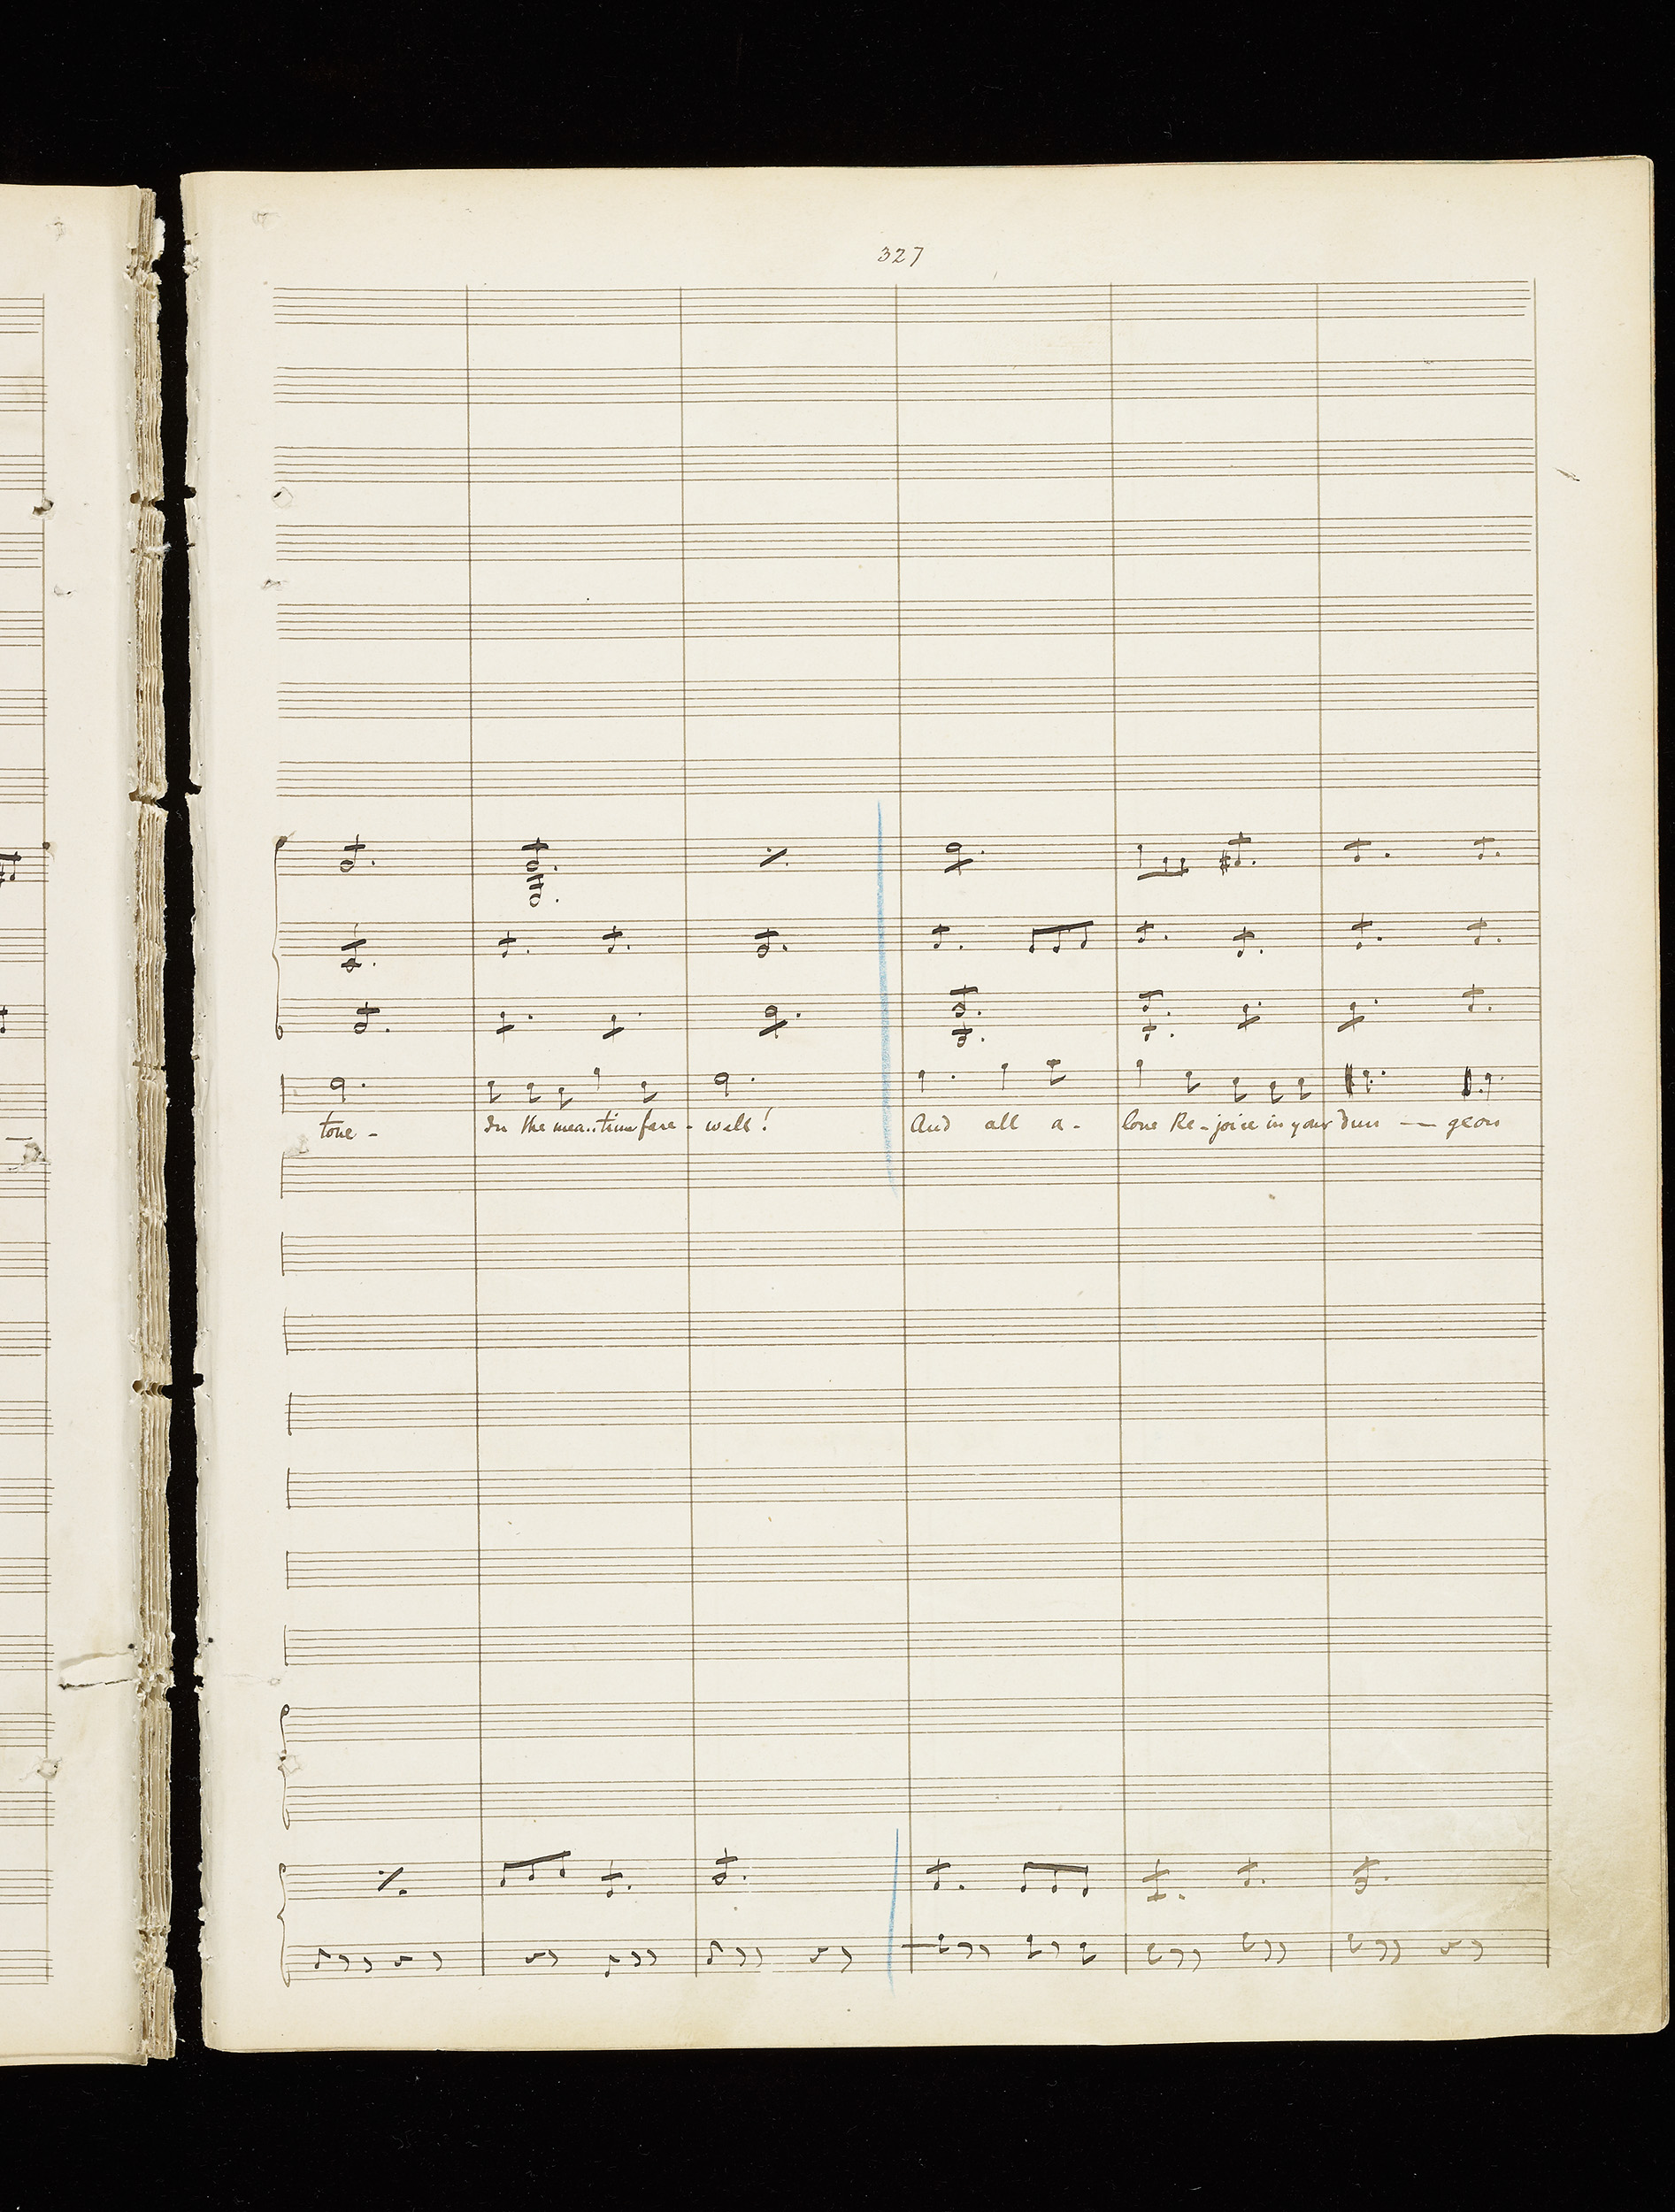 327
tone - In the mea..time fare - well! And all a - lone Re - joice in your dun — geon